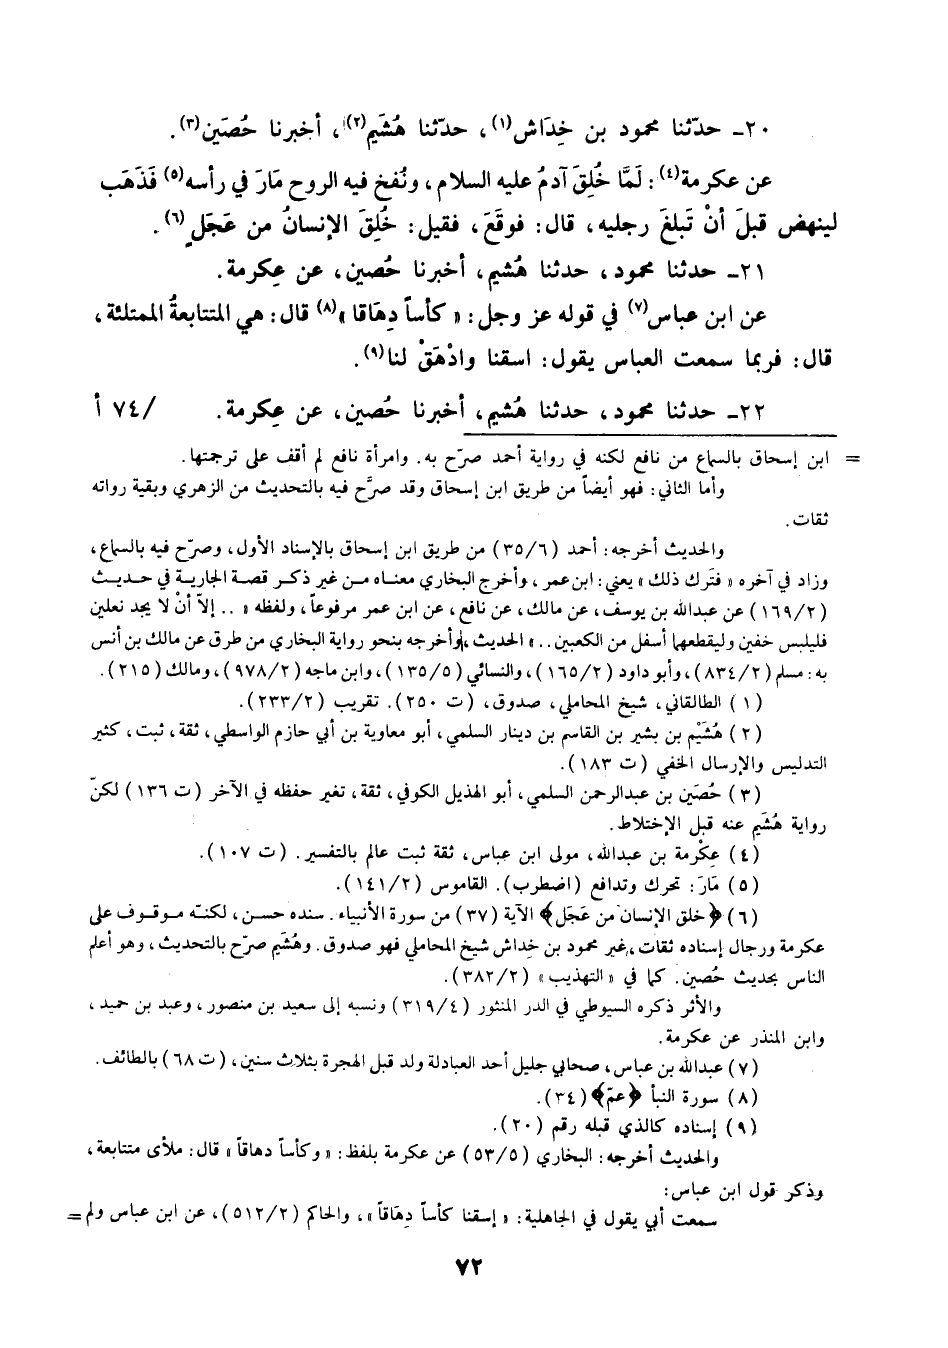 ٢٠ـ حدّثنا محمود بن خِدَاش(١)، حدّثنا هُشَيم(٢)، أخبرنا حُصَين(٣).
عن عكرمة(٤): لَمَّا خُلِقَ آدمُ عليه السلام، ونُفخ فيه الروح مَارَ في رأسه(٥) فَذَهَب
لينهض قبلَ أنْ تَبلغَ رجليه، قال: فوقَعَ، فقيل: خُلِقَ الإنسانُ من عَجَلٍ(٦).
٢١ـ حدثنا محمود، حدثنا هُشيم، أخبرنا حُصين، عن عِكرمة.
عن ابن عباس(٧) في قوله عز وجل: «كأساً دِهَاقا»(٨) قال: هي المتتابعةُ الممتلئة،
قال: فربما سمعت العباس يقول: اسقنا وادْهَقْ لنا(٩).
٢٢ـ حدثنا محمود، حدثنا هُشيم، أخبرنا حُصين، عن عِكرمة. /٧٤ أ
= ابن إسحاق بالسماع من نافع لكنه في رواية أحمد صرّح به. وامرأة نافع لم أقف على ترجمتها.
وأما الثاني: فهو أيضاً من طريق ابن إسحاق وقد صرَّح فيه بالتحديث من الزهري وبقية رواته
ثقات.
والحديث أخرجه: أحمد (٣٥/٦) من طريق ابن إسحاق بالإسناد الأول، وصرّح فيه بالسماع،
وزاد في آخره «فتَرك ذلك» يعني: ابن عمر، وأخرج البخاري معناه من غير ذكر قصة الجارية في حديث
(١٦٩/٢) عن عبدالله بن يوسف، عن مالك، عن نافع، عن ابن عمر مرفوعاً، ولفظه «.. إلاّ أنْ لا يجد نعلين
فليلبس خفين وليقطعها أسفل من الكعبين..» الحديث، وأخرجه بنحو رواية البخاري من طرق عن مالك بن أنس
به: مسلم (٨٣٤/٢)، وأبو داود (١٦٥/٢)، والنسائي (١٣٥/٥)، وابن ماجه (٩٧٨/٢)، ومالك (٢١٥).
(١) الطالقاني، شيخ المحاملي، صدوق، (ت ٢٥٠). تقريب (٢٣٣/٢).
(٢) هُشَيْم بن بشير بن القاسم بن دينار السلمي، أبو معاوية بن أبي حازم الواسطي، ثقة، ثبت، كثير
التدليس والإرسال الخفي (ت ١٨٣).
(٣) حُصَين بن عبدالرحمن السلمي، أبو الهذيل الكوفي، ثقة، تغير حفظه في الآخر (ت ١٣٦) لكنّ
رواية هُشَيم عنه قبل الإختلاط.
(٤) عِكْرمة بن عبدالله، مولى ابن عباس، ثقة ثبت عالم بالتفسير. (ت ١٠٧).
(٥) مَارَ: تحرك وتدافع (اضطرب). القاموس (١٤١/٢).
(٦) ﴿خلق الإنسان من عَجَل﴾ الآية (٣٧) من سورة الأنبياء. سنده حسن، لكنّه موقوف على
عكرمة ورجال إسناده ثقات، غير محمود بن خِداش شيخ المحاملي فهو صدوق. وهُشَيم صرّح بالتحديث، وهو أعلم
الناس بحديث حُصين. كما في «التهذيب» (٣٨٢/٢).
والأثر ذكره السيوطي في الدر المنثور (٣١٩/٤) ونسبه إلى سعيد بن منصور، وعبد بن حميد،
وابن المنذر عن عكرمة.
(٧) عبدالله بن عباس، صحابي جليل أحد العبادلة ولد قبل الهجرة بثلاث سنين، (ت ٦٨) بالطائف.
(٨) سورة النبأ ﴿عمّ﴾ (٣٤).
(٩) إسناده كالذي قبله رقم (٢٠).
والحديث أخرجه: البخاري (٥٣/٥) عن عكرمة بلفظ: «وكأساً دهاقاً» قال: ملأى متتابعة،
وذكر قول ابن عباس:
سمعت أبي يقول في الجاهلية: «إسقنا كأساً دِهَاقاً»، والحاكم (٥١٢/٢)، عن ابن عباس ولم =
٧٢